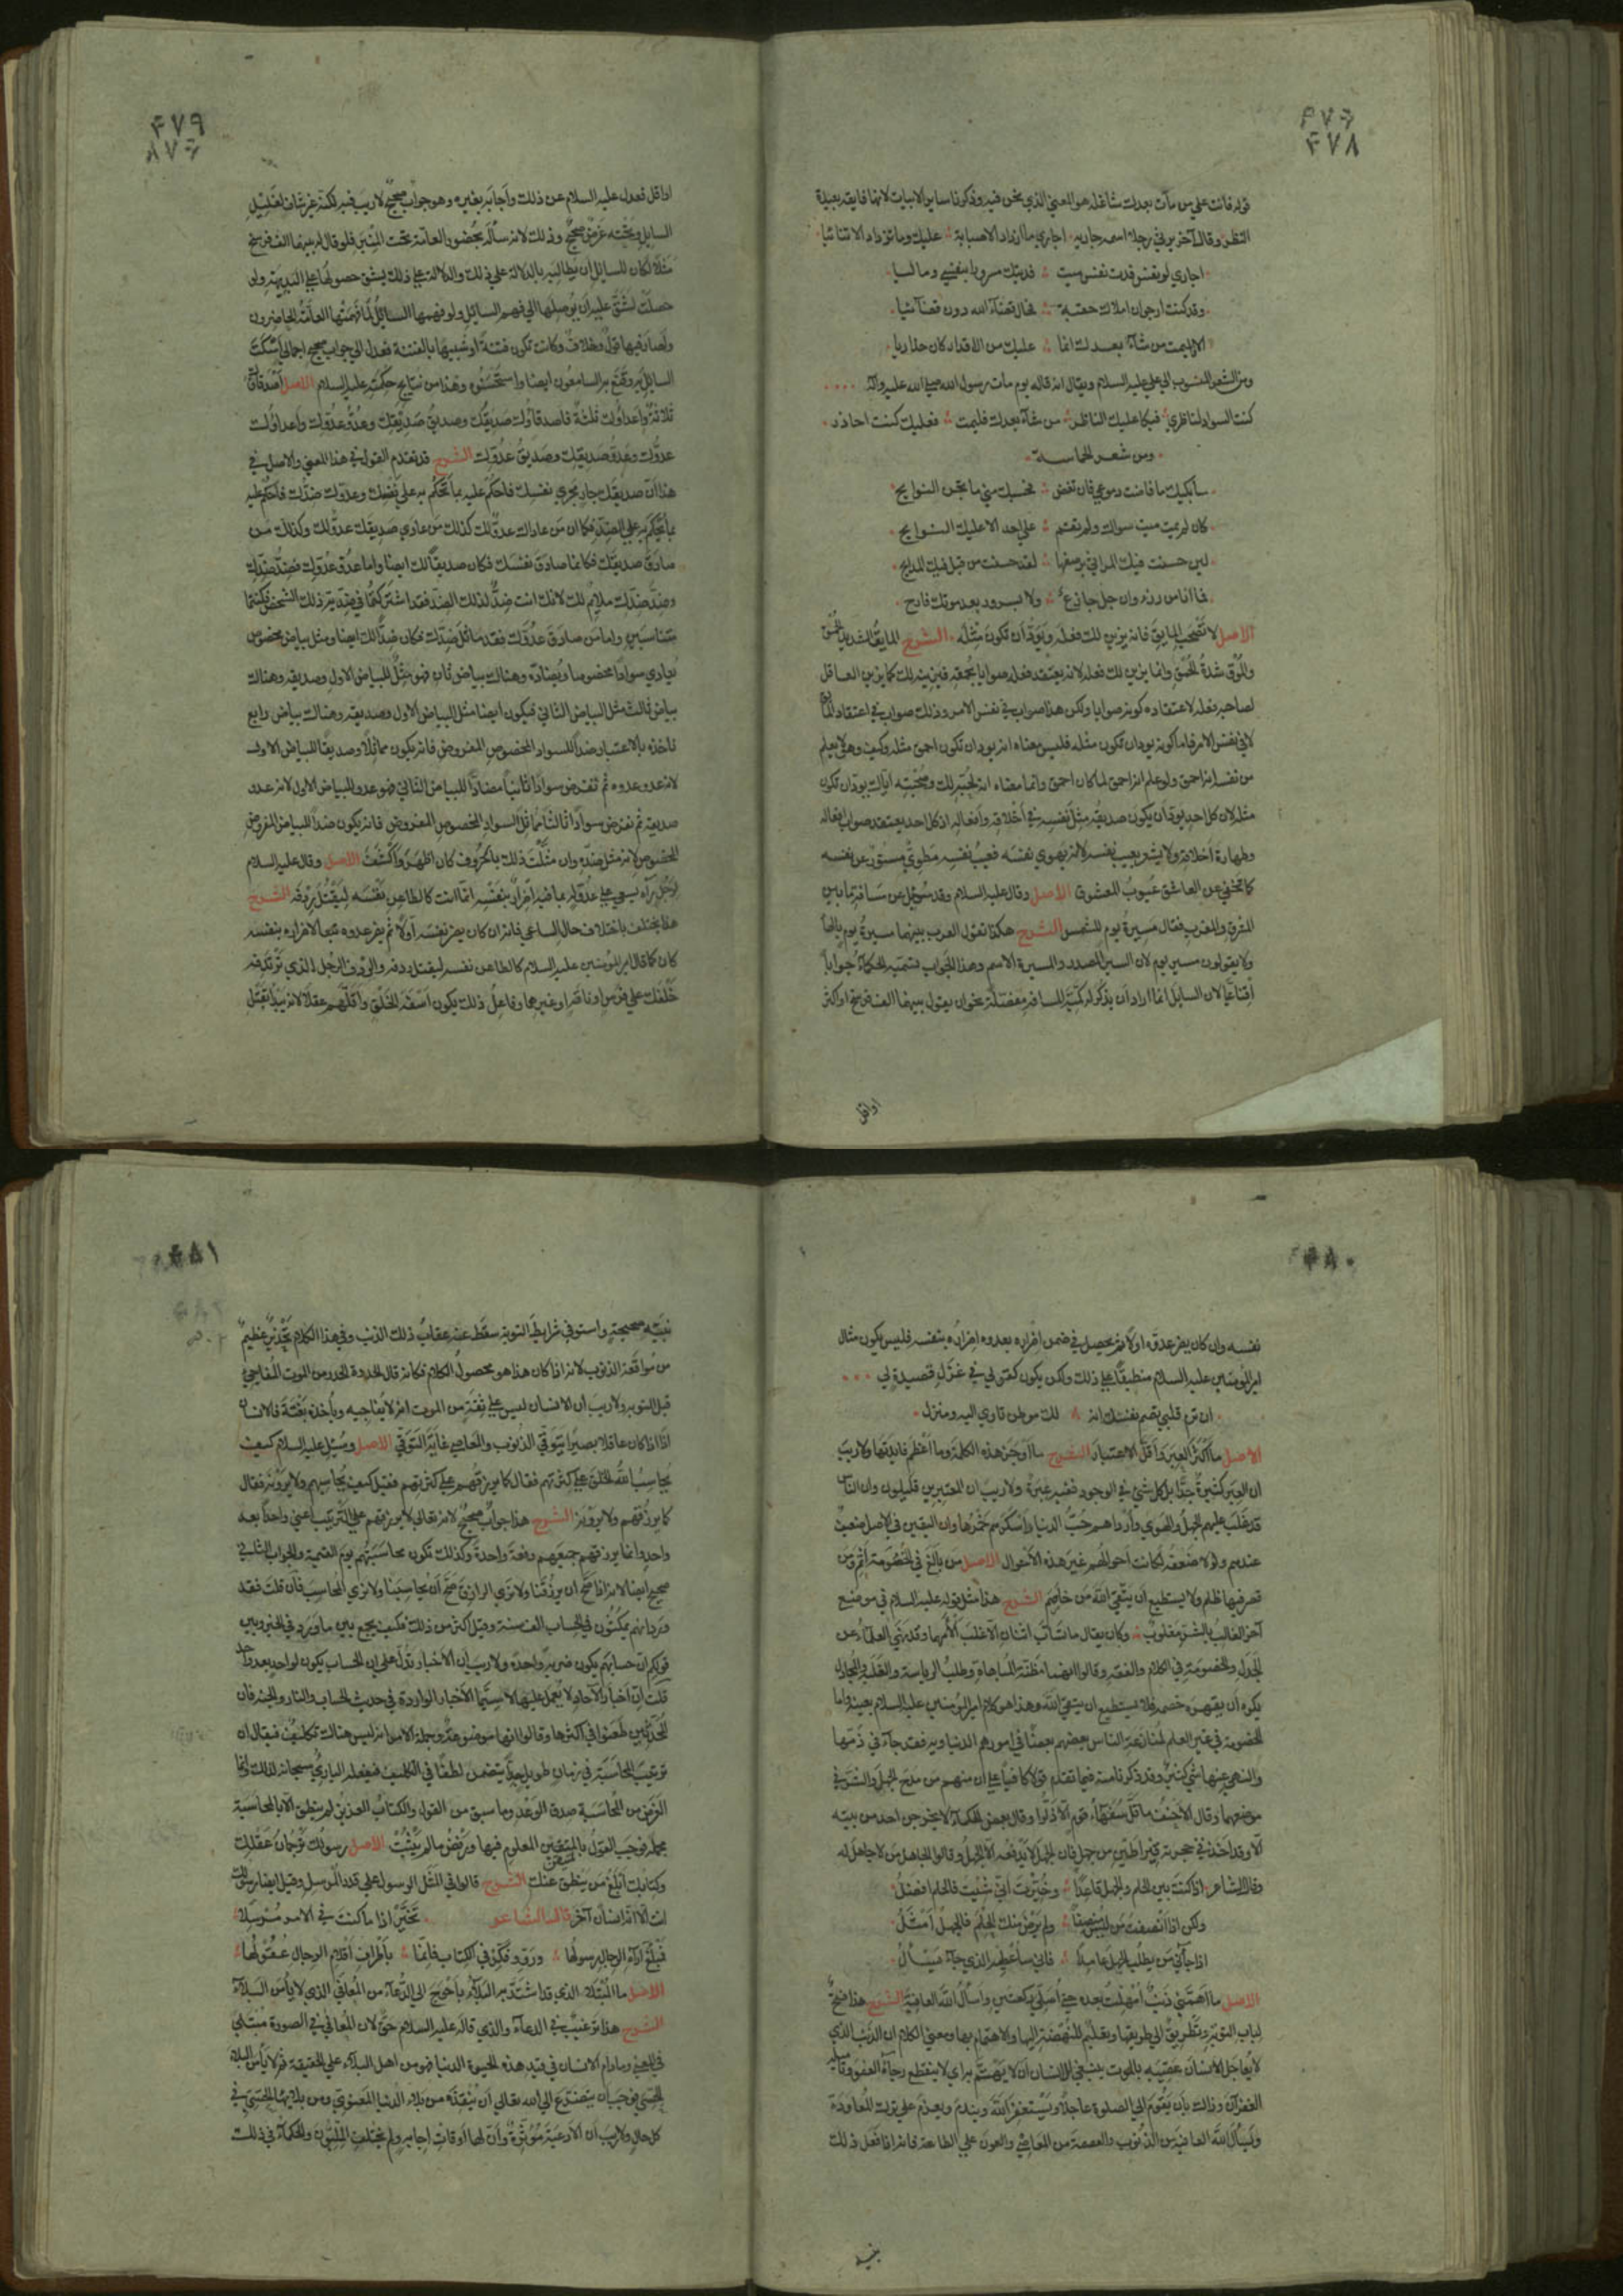 ۴۷۸
قوله فانت علي من مات بعدك شاقله هو المعني الذي نحن فيه وذكرنا ساير الابيات لانها فايقة بعيدة
النظير وقال آخر يرثي رجلا اسمه جارية اجاري ما ازداد الا صبابة عليك وما تزداد الا تنائيا
اجاري لو نفس فدت نفس ميت فديتك مسرورا بنفسي وماليا
وقد كنت ارجو ان املاك حقبة فحال قضآء الله دون قضآئيا
الا ليمت من شآء بعدك انما عليك من الاقدار كان حذاريا
ومن الشعر المنسوب الي علي عليه السلام ويقال انه قاله يوم مات رسول الله صلي الله عليه وآله
كنت السواد لناظري فبكا عليك الناظر من شآء بعدك فليمت فعليك كنت احاذر
ومن شعر الحماسة
سابكيك ما فاضت دموعي فان تغض فحسبك مني ما تجن الجوانح
كان لم يمت ميت سواك ولم تقم علي احد الا عليك النوايح
لين حسنت فيك المراثي بوصفها لقد حسنت من قبل فيك المدايح
فما انا من رزء وان جل جازع ولا بسرور بعد موتك فارح
الاصل لا تصحب المايق فانه يزين لك فعله ويود ان تكون مثله الشرح المايق الشديد الحمق
والموق شدة الحمق وانما يزين لك فعله لانه يعتقد فعله صوابا بحمقه فيزينه لك كما يزين العاقل
لصاحبه فعله لاعتقاده كونه صوابا ولكن هذا صواب في نفس الامر وذلك صواب في اعتقاد المايق
لا في نفس الامر فاما كونه يود ان تكون مثله فليس معناه انه يود ان تكون احمق مثله وكيف وهو لا يعلم
من نفسه انه احمق ولو علم انه احمق لما كان احمق وانما معناه انه لحبه لك وصحبته اياك يود ان تكون
مثله لان كل احد يود ان يكون صديقه مثل نفسه في اخلاقه وافعاله اذ كل احد يعتقد صواب افعاله
وطهارة اخلاقه ولا يشعر بعيب نفسه لانه يهوي نفسه فعيب نفسه مطوي مستور عن نفسه
كما تخفي عن العاشق عيوب المعشوق الاصل وقال عليه السلام وقد سئل عن مسافة ما بين
المشرق والمغرب فقال مسيرة يوم للشمس الشرح هكذا تقول العرب بينهما مسيرة يوم بالهآ
ولا يقولون مسير يوم لان السير المصدر والمسيرة الاسم وهذا الجواب تسميه الحكمآء جوابا
اقناعيا لان السايل انما اراد ان يذكر له كمية المسافة مفصلة نحو ان يقول بينهما الف فرسخ او اكثر
او اقل
۴۷۹
او اقل فعدل عليه السلام عن ذلك واجابه بغيره وهو جواب صحيح لا ريب فيه لكنه غير شاف لغليل
السايل وتحته غرض صحيح وذلك لانه سأله بحضور العامة تحت المنبر فلو قال له بينهما الف فرسخ
مثلا لكان للسايل ان يطالبه بالدلالة علي ذلك والدلالة علي ذلك يشق حصولها علي البديهة ولو
حصلت لشق عليه ان يوصلها الي فهم السائل ولو فهمها السائل لما فهمتها العامة الحاضرون
ولصار فيها قول وخلاف وكانت تكون فتنة او شبيها بالفتنة فعدل الي جواب صحيح اجمالي اسكت
السايل به وقنع به السامعون ايضا واستحسنوه وهذا من نتايج حكمته عليه السلام الاصل اصدقاؤك
ثلاثة واعداؤك ثلثة فاصدقاؤك صديقك وصديق صديقك وعدو عدوك واعداؤك
عدوك وعدو صديقك وصديق عدوك الشرح قد تقدم القول في هذا المعني والاصل في
هذا ان صديقك جار مجري نفسك فاحكم عليه بما تحكم به علي نفسك وعدوك ضدك فاحكم عليه
بما تحكم به علي الضد فكما ان من عاداك عدو لك كذلك من عادي صديقك عدو لك وكذلك من
صادق صديقك فكانما صادق نفسك فكان صديقا لك ايضا واما عدو عدوك فضد ضدك
وضد ضدك ملايم لك لانك انت ضد لذلك الضد فقد اشتركتما في ضدية ذلك الشخص فكنتما
متناسبين واما من صادق عدوك فقد ماثل ضدك فكان ضدا لك ايضا ومثل بياض مخصوص
يعادي سوادا مخصوصا ويضاده وهناك بياض ثان هو مثل للبياض الاول وصديقه وهناك
بياض ثالث مثل البياض الثاني فيكون ايضا مثل البياض الاول وصديقه وهناك بياض رابع
تاخذه بالاعتبار ضدا للسواد المخصوص المفروض فانه يكون مماثلا وصديقا للبياض الاول
لانه عدو عدوه ثم تفرض سوادا ثانيا مضادا للبياض الثاني فهو عدو للبياض الاول لانه عدو
صديقه ثم نفرض سوادا ثالثا مماثل السواد المخصوص المفروض فانه يكون ضدا للبياض المفروض
المخصوص لانه مثل ضده وان مثلت ذلك بالحروف كان اظهر واكشف الاصل وقال عليه السلام
لرجل رآه يسعي علي عدو له بما فيه اضرار بنفسه انما انت كالطاعن نفسه ليقتل ردفه الشرح
هذا يختلف باختلاف حال الساعي فانه ان كان يضر نفسه اولا ثم يضر عدوه تبعا لاضراره بنفسه
كان كما قال امير المؤمنين عليه السلام كالطاعن نفسه ليقتل ردفه والردف الرجل الذي ترتدفه
خلفك علي فرس او ناقة او غيرهما وفاعل ذلك يكون اسفه الخلق واقلهم عقلا لانه يبدأ بقتل
۴۸۰
نفسه وان كان يضر عدوه اولا يحصل في ضمن اضراره بعدوه اضراره بنفسه فليس يكون مثال
امير المؤمنين عليه السلام منطبقا علي ذلك ولكن يكون كقولي في غزل قصيدة لي
ان ترم قلبي تصم نفسك انه لك موطن تاوي اليه ومنزل
الاصل ما اكثر العبر واقل الاعتبار الشرح ما اوجز هذه الكلمة وما اعظم فايدتها ولا ريب
ان العبر كثيرة جدا بل كل شيء في الوجود ففيه عبرة ولا ريب ان المعتبرين قليلون وان الناس
قد غلب عليهم الجهل والهوي وارداهم حب الدنيا واسكرهم خمرها وان اليقين في الاصل ضعيف
عندهم ولولا ضعفه لكانت احوالهم غير هذه الاحوال الاصل من بالغ في الخصومة اثم ومن
قصر فيها ظلم ولا يستطيع ان يتقي الله من خاصم الشرح هذا مثل قوله عليه السلام في موضع
آخر الغالب بالشر مغلوب وكان يقال ما تساب اثنان الا غلب الأمهما وقد نهي العلمآء عن
الجدل والخصومة في الكلام والفقه وقالوا انهما مظنة المباهاة وطلب الرياسة والغلبة والمجادل
يكره ان يقهره خصمه فلا يستطيع ان يتقي الله وهذا هو كلام امير المؤمنين عليه السلام بعينه واما
الخصومة في غير العلم كمنازعة الناس بعضهم بعضا في امورهم الدنياوية فقد جآء في ذمها
والنهي عنها شيء كثير وقد ذكرنا منه فيما تقدم قولا كافيا علي ان منهم من مدح الجهل والشر في
موضعهما وقال الاحنف ما قل سفهآء قوم الا ذلوا وقال بعض الحكمآء لا يخرجن احد من بيته
الا وقد اخذ في حجزته قيراطين من جهل فان الجهل لا يدفعه الا الجهل وقالوا الجاهل من لا جاهل له
وقال الشاعر اذا كنت بين الحلم والجهل قاعدا وخيرت اني شئت فالحلم افضل
ولكن اذا انصفت من ليس منصفا ولم يرض منك الحلم فالجهل امثل
اذا جآءني من يطلب الجهل عامدا فاني ساعطيه الذي جآء يسأل
الاصل ما اهمني ذنب امهلت بعده حتي اصلي ركعتين واسأل الله العافية الشرح هذا فتح
لباب التوبة وتطريق الي طريقها وتعليم للنهضة اليها والاهتمام بها ومعني الكلام ان الذنب الذي
لا يعاجل الانسان عقيبه بالموت ينبغي للانسان ان لا يهتم به اي لا ينقطع رجآؤه العفو وتاميله
الغفران وذلك بان يقوم الي الصلوة عاجلا ويستغفر الله ويندم ويعزم علي ترك المعاودة
ويسأل الله العافية من الذنوب والعصمة من المعاصي والعون علي الطاعة فانه اذا فعل ذلك
بنية
۴۸۱
بنية صحيحة واستوفي شرايط التوبة سقط عنه عقاب ذلك الذنب وفي هذا الكلام تحذير عظيم
من مواقعة الذنوب لانه اذا كان هذا هو محصول الكلام فكانه قال الحذر الحذر من الموت المفاجي
قبل التوبة ولا ريب ان الانسان ليس علي ثقة من الموت انه لا يفاجيه وياخذه بغتة فالانسان
اذا كان عاقلا بصيرا يتوقي الذنوب والمعاصي غاية التوقي الاصل وسئل عليه السلام كيف
يحاسب الله الخلق علي كثرتهم فقال كما يرزقهم علي كثرتهم فقيل كيف يحاسبهم ولا يرونه فقال
كما يرزقهم ولا يرونه الشرح هذا جواب صحيح لانه تعالي لا يرزقهم علي الترتيب اعني واحدا بعد
واحد وانما يرزقهم جميعهم دفعة واحدة وكذلك تكون محاسبتهم يوم القيمة والجواب الثاني
صحيح ايضا لانه اذا صح ان يرزقنا ولا نري الرازق صح ان يحاسبنا ولا نري المحاسب فان قلت فقد
ورد انهم يمكثون في الحساب الف سنة وقيل اكثر من ذلك فكيف يجمع بين ما ورد في الخبر وبين
قولكم ان حسابهم يكون ضربة واحدة ولا ريب ان الاخبار تدل علي ان الحساب يكون لواحد بعد واحد
قلت ان اخبار الآحاد لا يعمل عليها لا سيما الاخبار الواردة في حديث الحساب والنار والجنة فان
المحدثين طعنوا في اكثرها وقالوا انها موضوعة وجملة الامر انه ليس هناك تكليف فيقال ان
ترتيب المحاسبة في زمان طويل جدا يتضمن لطفا في التكليف فيفعله الباري سبحانه لذلك وانما
الغرض من المحاسبة صدق الوعد وما سبق من القول والكتاب العزيز لم ينطق الا بالمحاسبة
مجملة فوجب القول بالمتيقن المعلوم فيها ورفض ما لم يثبت الاصل رسولك ترجمان عقلك
وكتابك ابلغ من ينطق عنك الشرح قالوا في المثل الرسول علي قدر المرسل وقيل ايضا رسولك
انت الا انه انسان آخر قال الشاعر تخير اذا ما كنت في الامر مرسلا
فمبلغ آرآء الرجال رسولها ورو وفكر في الكتاب فانما باطراف اقلام الرجال عقولها
الاصل ما المبتلي الذي قد اشتد به البلآء باحوج الي الدعآء من المعافي الذي لا يأمن البلآء
الشرح هذا ترغيب في الدعآء والذي قاله عليه السلام حق لان المعافي في الصورة مبتلي
في المعني وما دام الانسان في قيد هذه الحيوة الدنيا فهو من اهل البلآء علي الحقيقة ثم لا يأمن البلآء
الحسي فوجب ان يتضرع الي الله تعالي ان ينقذه من بلآء الدنيا المعنوي ومن بلآئها الحسي في
كل حال ولا ريب ان الادعية مؤثرة وان لها اوقات اجابة ولم يختلف المليون والحكمآء في ذلك